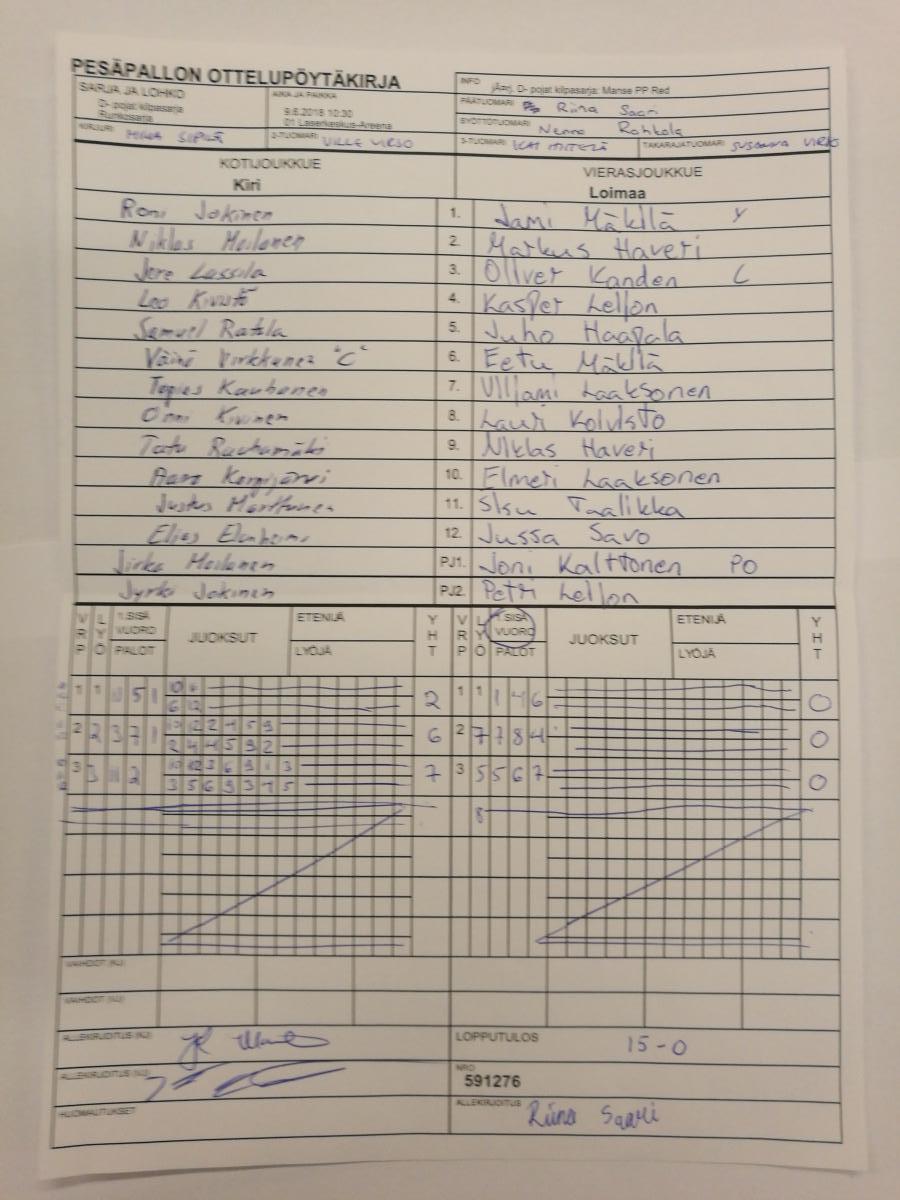 PESÄPALLON OTTELUPÖYTÄKIRJA
SARJA JA LOHKO
D- pojat kilpasarja
Runkosarja
AIKA JA PAIKKA
9.6.2018 10:30
01 Laserkeskus-Areena
INFO
jÄrrj. D- pojat kilpasarja: Manse PP Red
PÄÄTUOMARI Riina Saari
SYÖTTÖTUOMARI Nenna Rohkola
KIRJURI SIPILÄ
2-TUOMARI VILLE VIRSO
3-TUOMARI
TAKARAJATUOMARI SUSANNA VIRSO
KOTIJOUKKUE
Kiri
VIERASJOUKKUE
Loimaa
Roni Jokinen 1. Jami Mäkilä Y
Niklas Moilanen 2. Markus Haveri
Jere Lassila 3. Oliver Kanden C
Leo Kivistö 4. Kasper Leljon
Samuel Ratala 5. Juho Haapala
Väinö Virkkunen "C" 6. Eetu Mäkilä
Topias Kauhanen 7. Viljami Laaksonen
Onni Kivinen 8. Lauri Koivisto
Tatu Rauhamäki 9. Niklas Haveri
Aaro 10. Elmeri Laaksonen
Justus Marttunen 11. Isku Taalikka
Elias Elenheimo 12. Jussa Savo
Jirka Moilanen PJ1. Joni Kalttonen PO
Jyrki Jokinen PJ2. Petri Leljon
VRP LYÖ 1.SISÄ VUORO PALOT JUOKSUT ETENIJÄ LYÖJÄ YHT VRP LYÖ 1.SISÄ VUORO PALOT JUOKSUT ETENIJÄ LYÖJÄ YHT
1 1 11 5 1 2 1 1 1 4 6 0
6 12
2 2 3 7 1 10 12 2 4 5 9 6 2 7 7 8 4 0
2 4 4 5 9 2
3 3 11 2 10 12 3 6 9 1 3 7 3 5 5 6 7 0
3 5 6 9 3 1 5
8
VAIHDOT (KJ)
VAIHDOT (VJ)
ALLEKIRJOITUS (KJ)
LOPPUTULOS 15-0
ALLEKIRJOITUS (VJ)
NRO
591276
HUOMAUTUKSET
ALLEKIRJOITUS Riina Saari